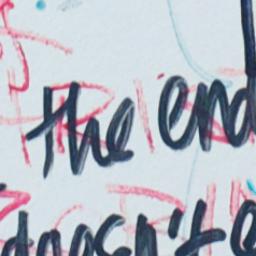 the end
doesn't